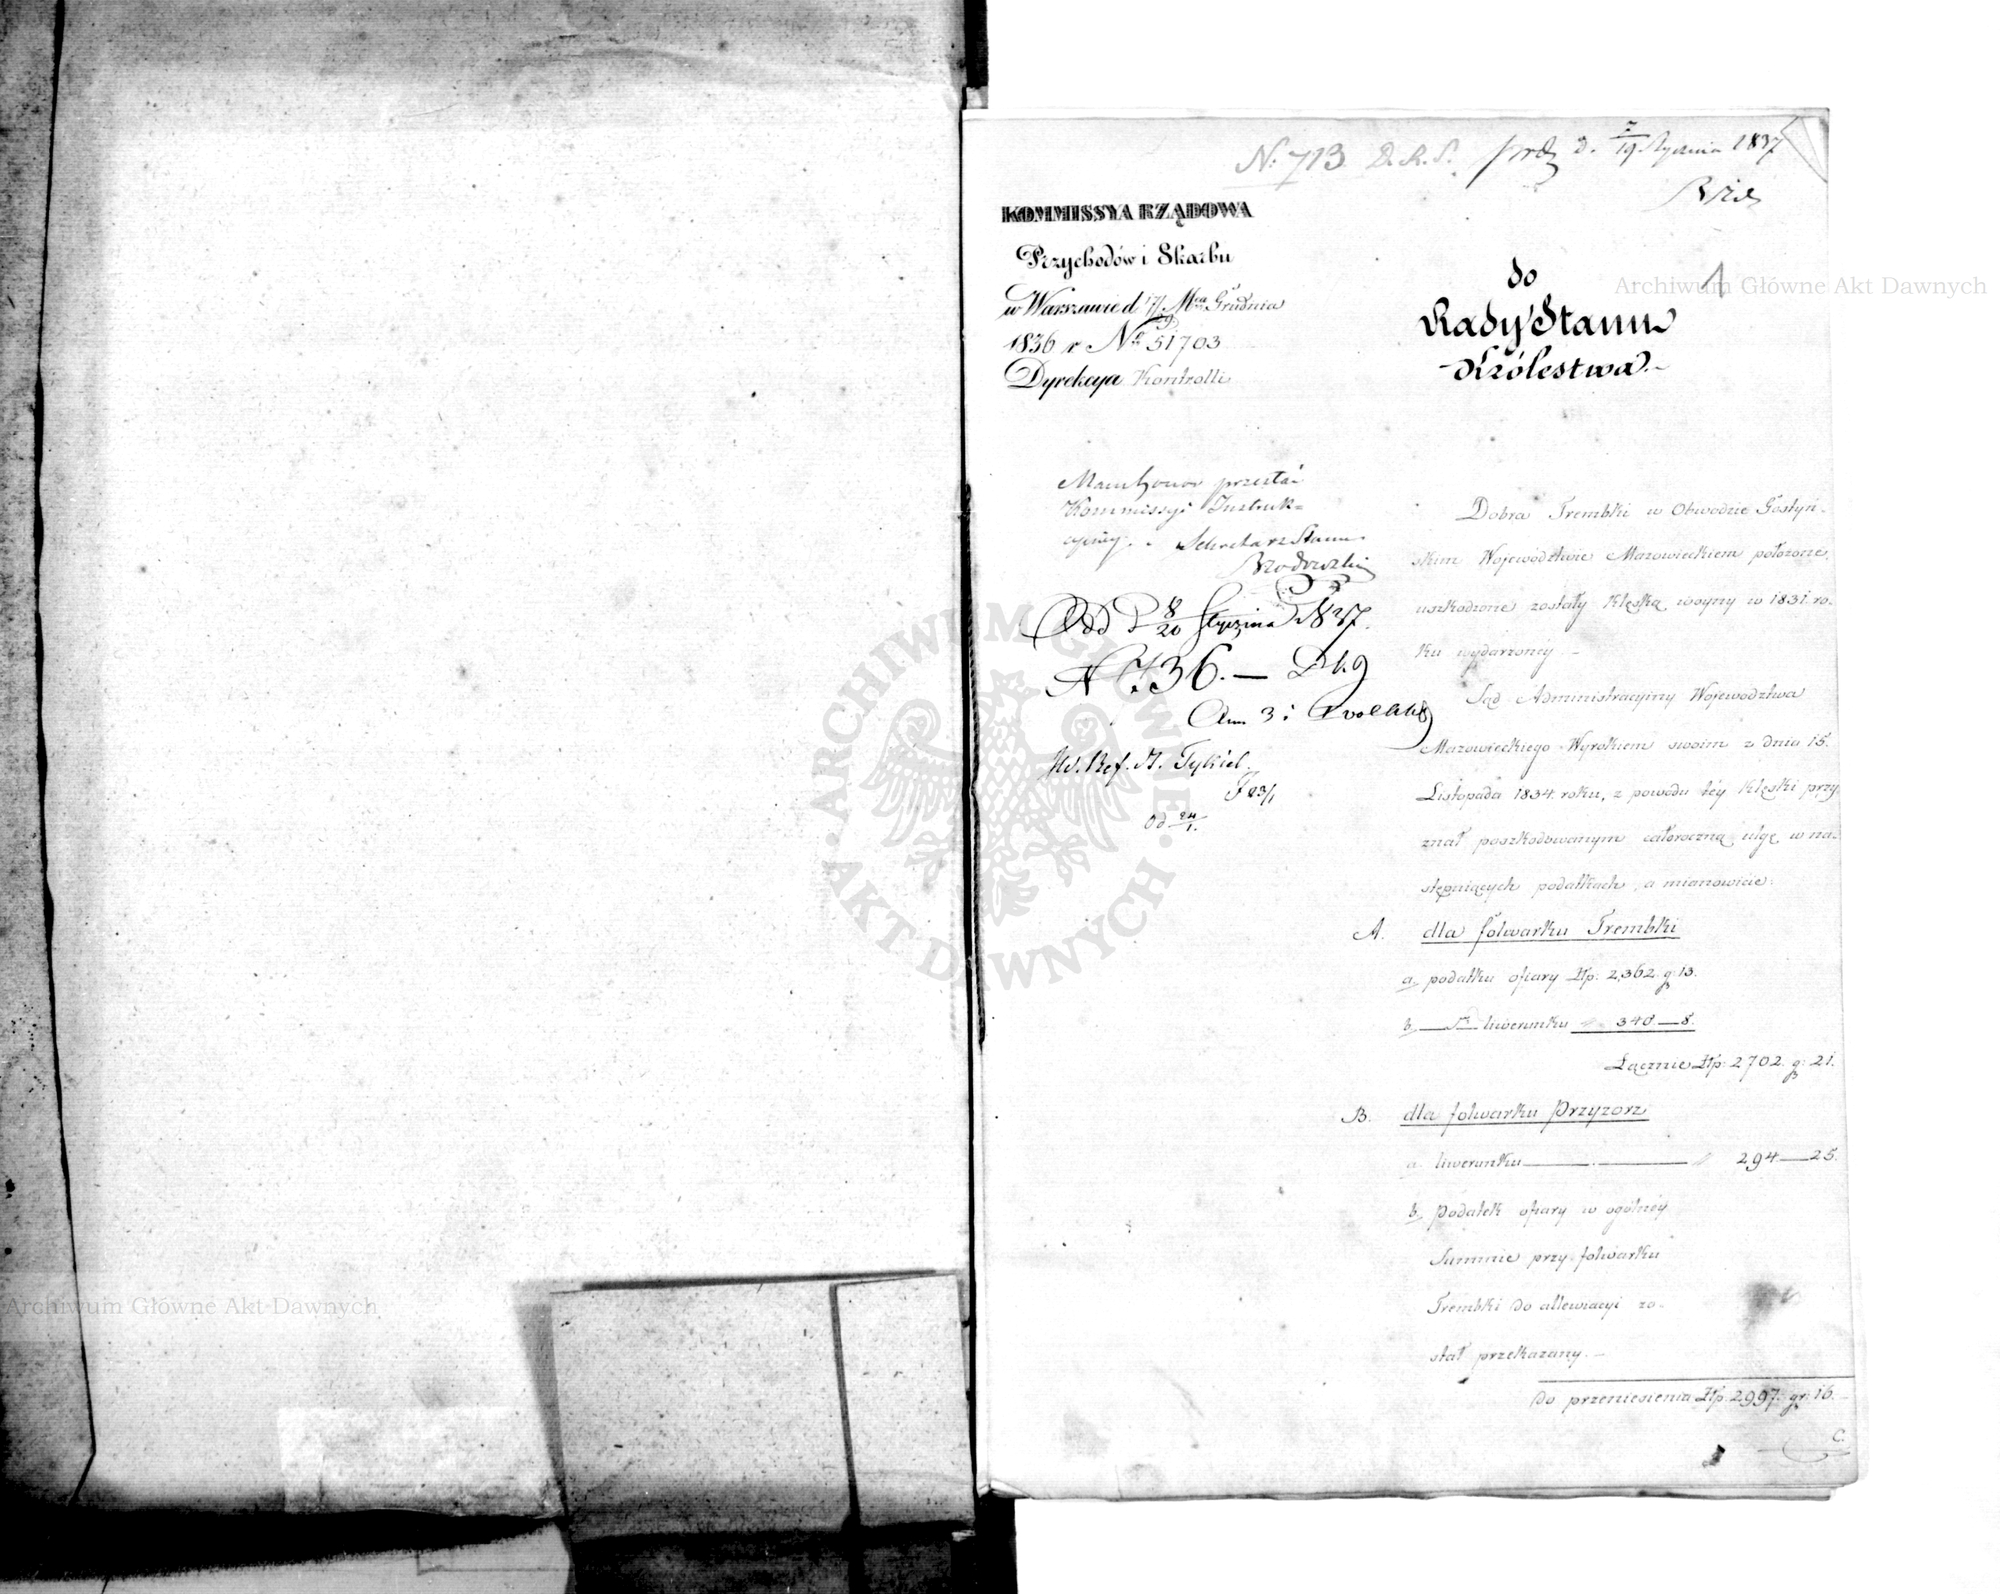 N: 713 D.R.S. prd d. 7/19 Stycznia 1837
KOMMISSYA RZĄDOWA
Przychodów i Skarbu
w Warszawie d 17/29 Mca Grudnia
1836 r Nr 51703
Dyrekcya Kontrolli
1
do
Rady Stanu
Królestwa.
Archiwum Główne Akt Dawnych
Mam honor przesłać
Kommissyi Instruk=
cyjney.
Sekretarz Stanu
Od D 8/20 Stycznia 1837.
N 736.
Od 24/1.
Dobra Trembki w Obwodzie Gostyń-
skim Województwie Mazowieckiem położone,
uszkodzone zostały klęską woyny w 1831. ro-
ku wydarzoney. –
Sąd Administracyiny Województwa
Mazowieckiego Wyrokiem swoim z dnia 15.
Listopada 1834. roku, z powodu téy klęski przy-
znał poszkodowanym całoroczną ulgę w na-
stępuiących podatkach, a mianowicie:
A. dla folwarku Trembki
a, podatku ofiary Złp: 2,362. g: 13.
b, — liwerunku 340. — 8.
Łącznie Złp: 2702. g: 21.
B. dla folwarku Przyzorz
a liwerunku — 294 — 25.
b, Podatek ofiary w ogólney
Summie przy folwarku
Trembki do allewiacyi zo-
stał przekazany. –
Do przeniesienia Złp. 2997. gr: 16.
C.
ARCHIWUM GŁÓWNE
AKT DAWNYCH
Archiwum Główne Akt Dawnych